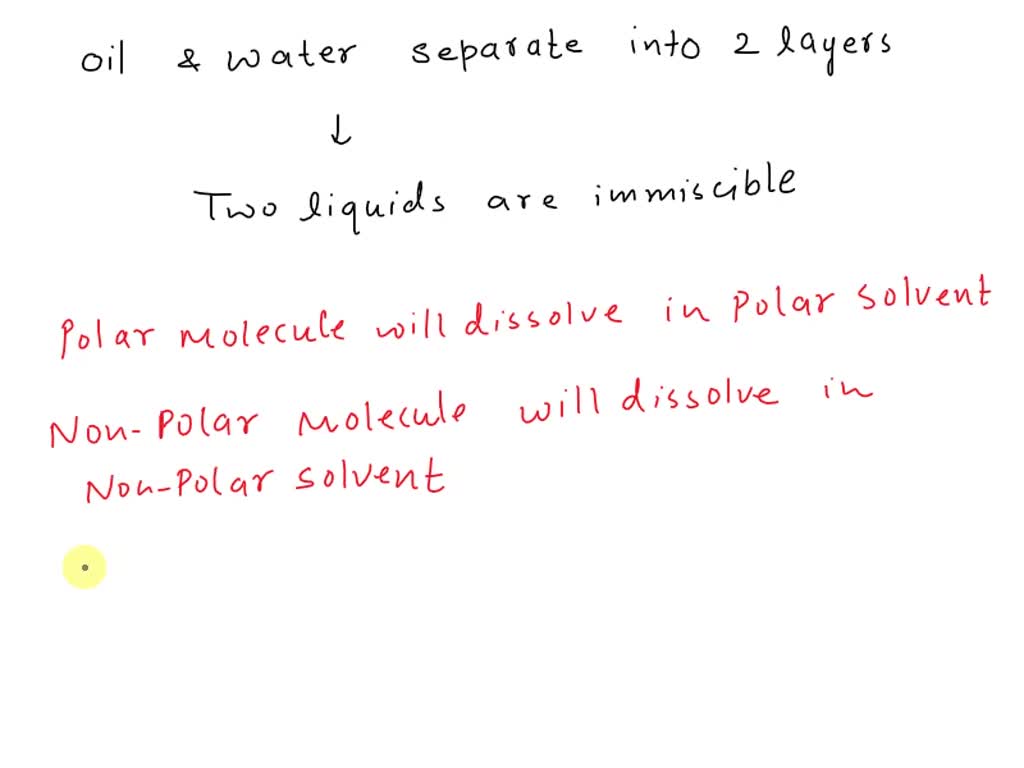 oil & water separate into 2 layers
↓
Two liquids are immiscible
Polar molecule will dissolve in polar solvent
Non-Polar molecule will dissolve in
Non-Polar solvent